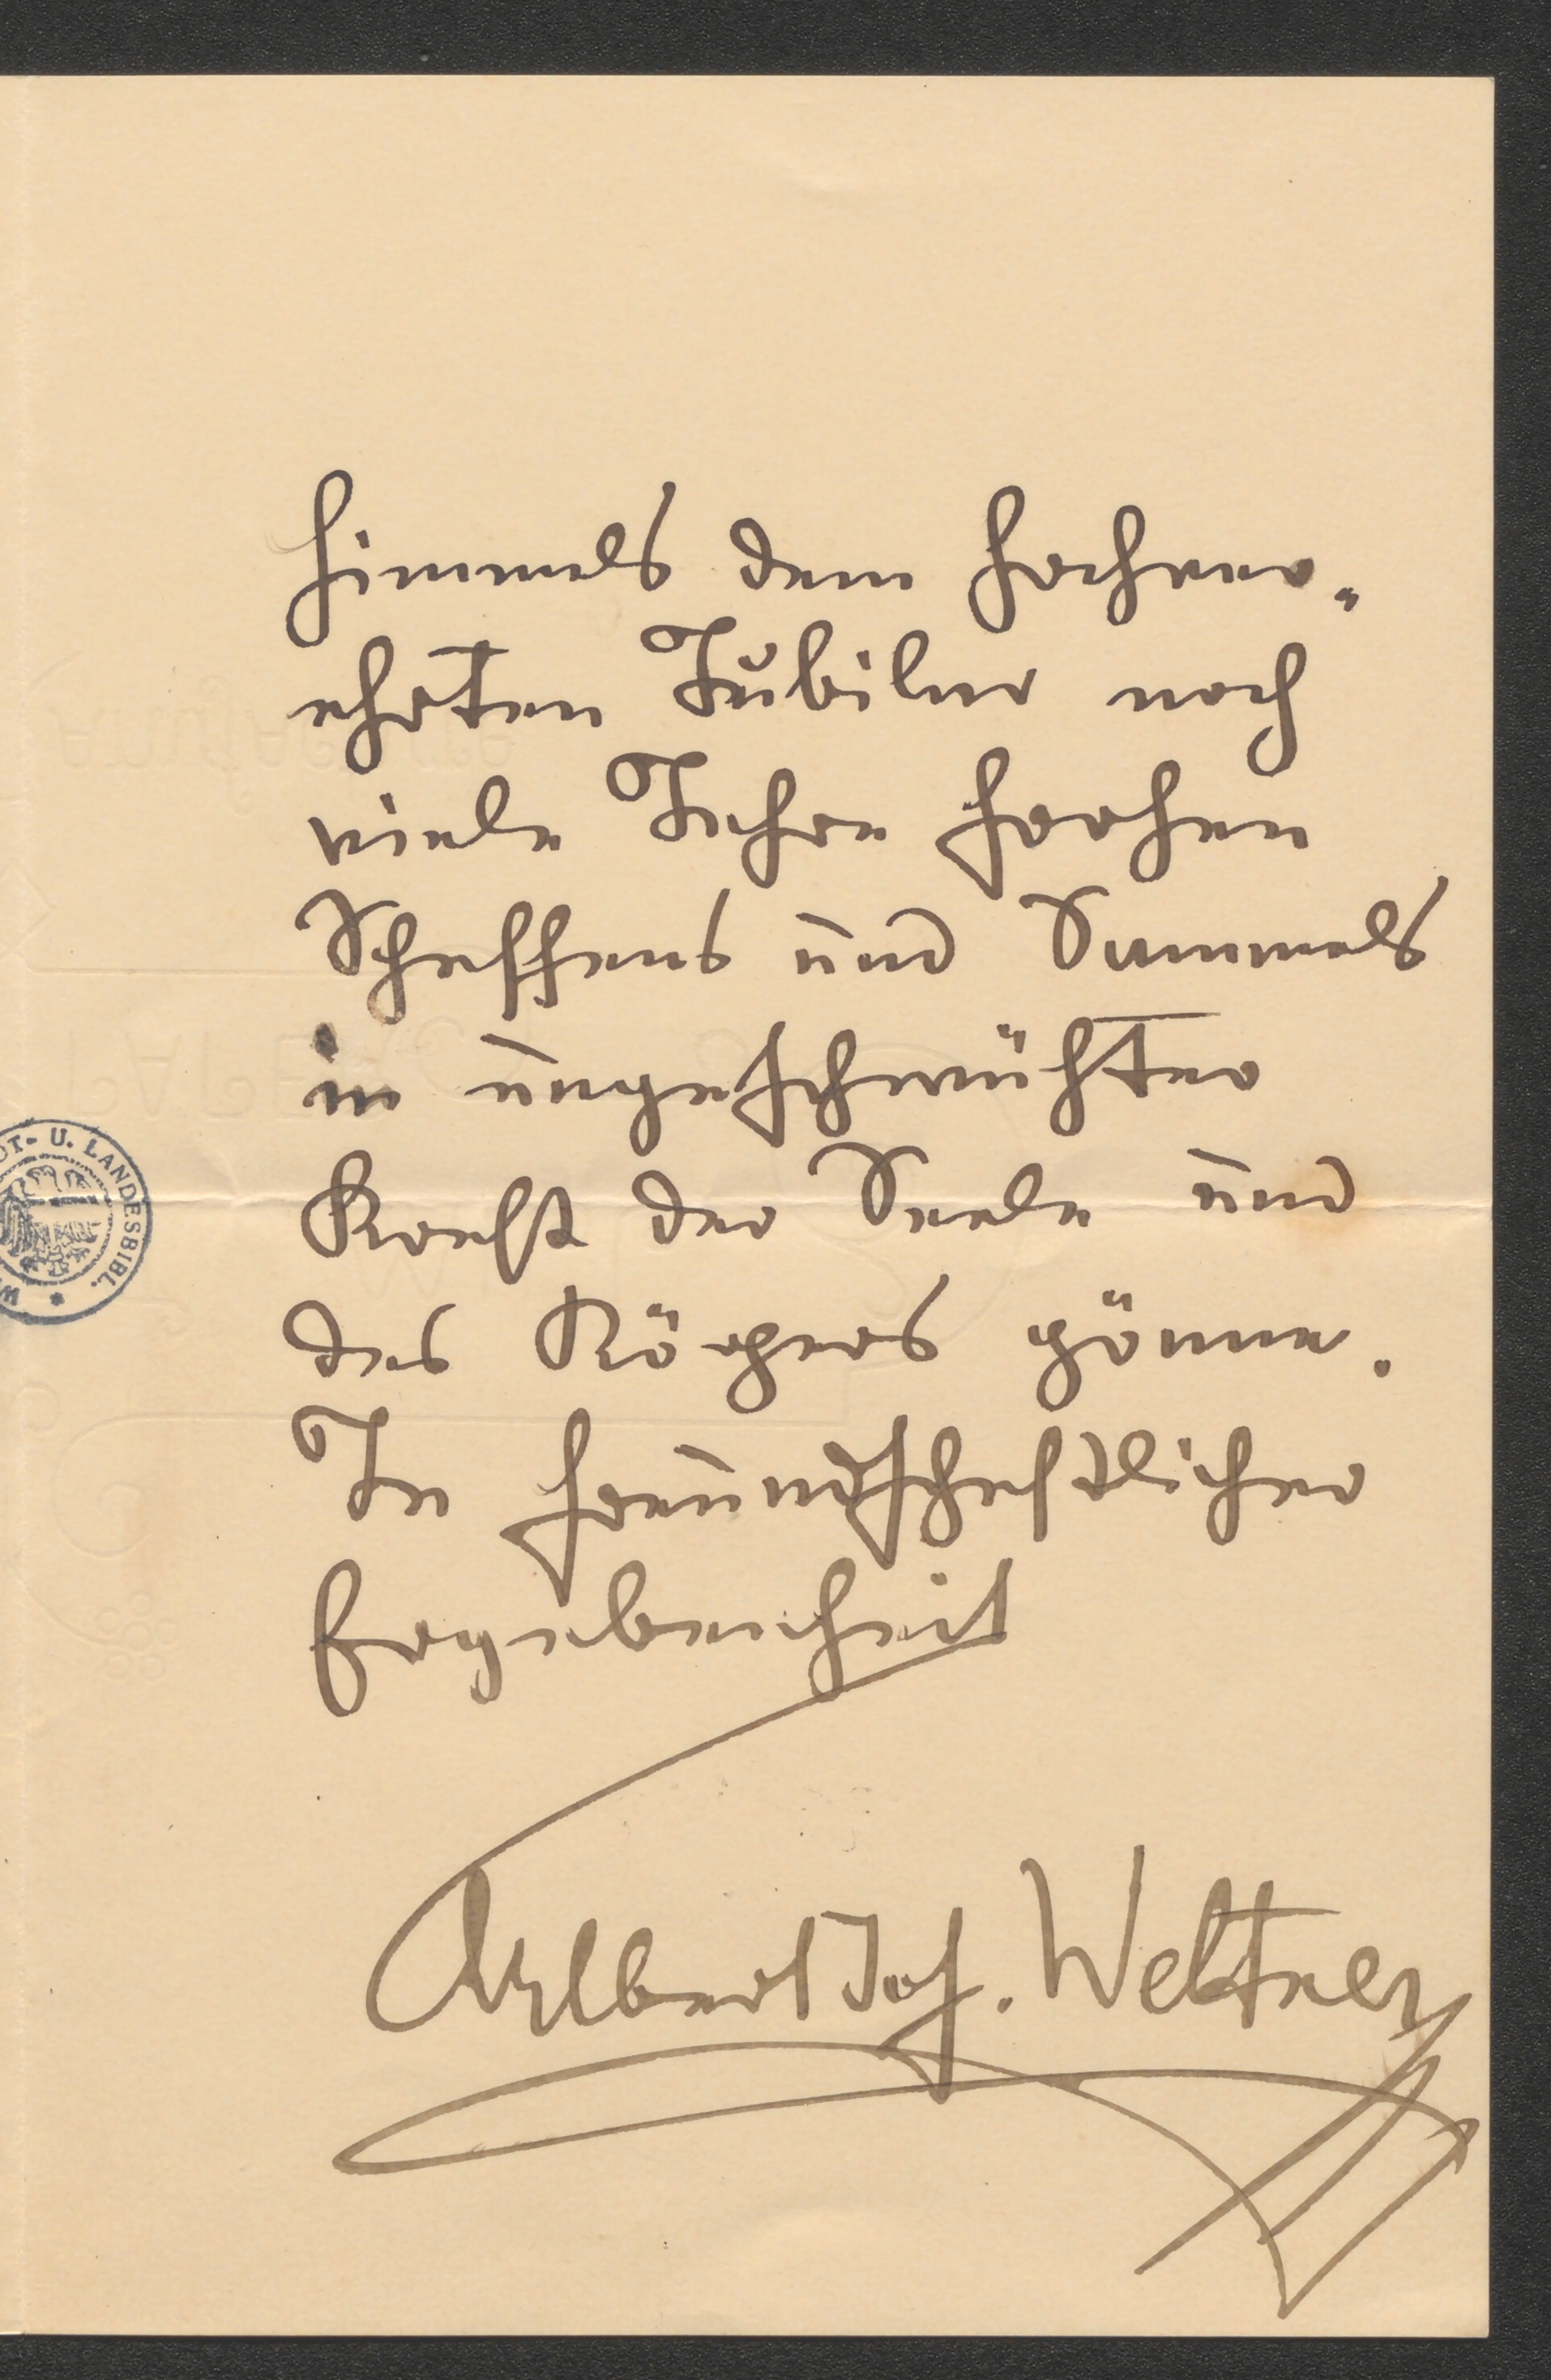 Himmels dem hochver-
ehrten Jubilar noch
viele Jahre frohen
Schaffens und Sammels
in ungeschwächter
Kraft der Seele und
des Körpers gönne.
In freundschaftlicher
Ergebenheit
Albert Jos. Weltner
U. LANDESBIBL.